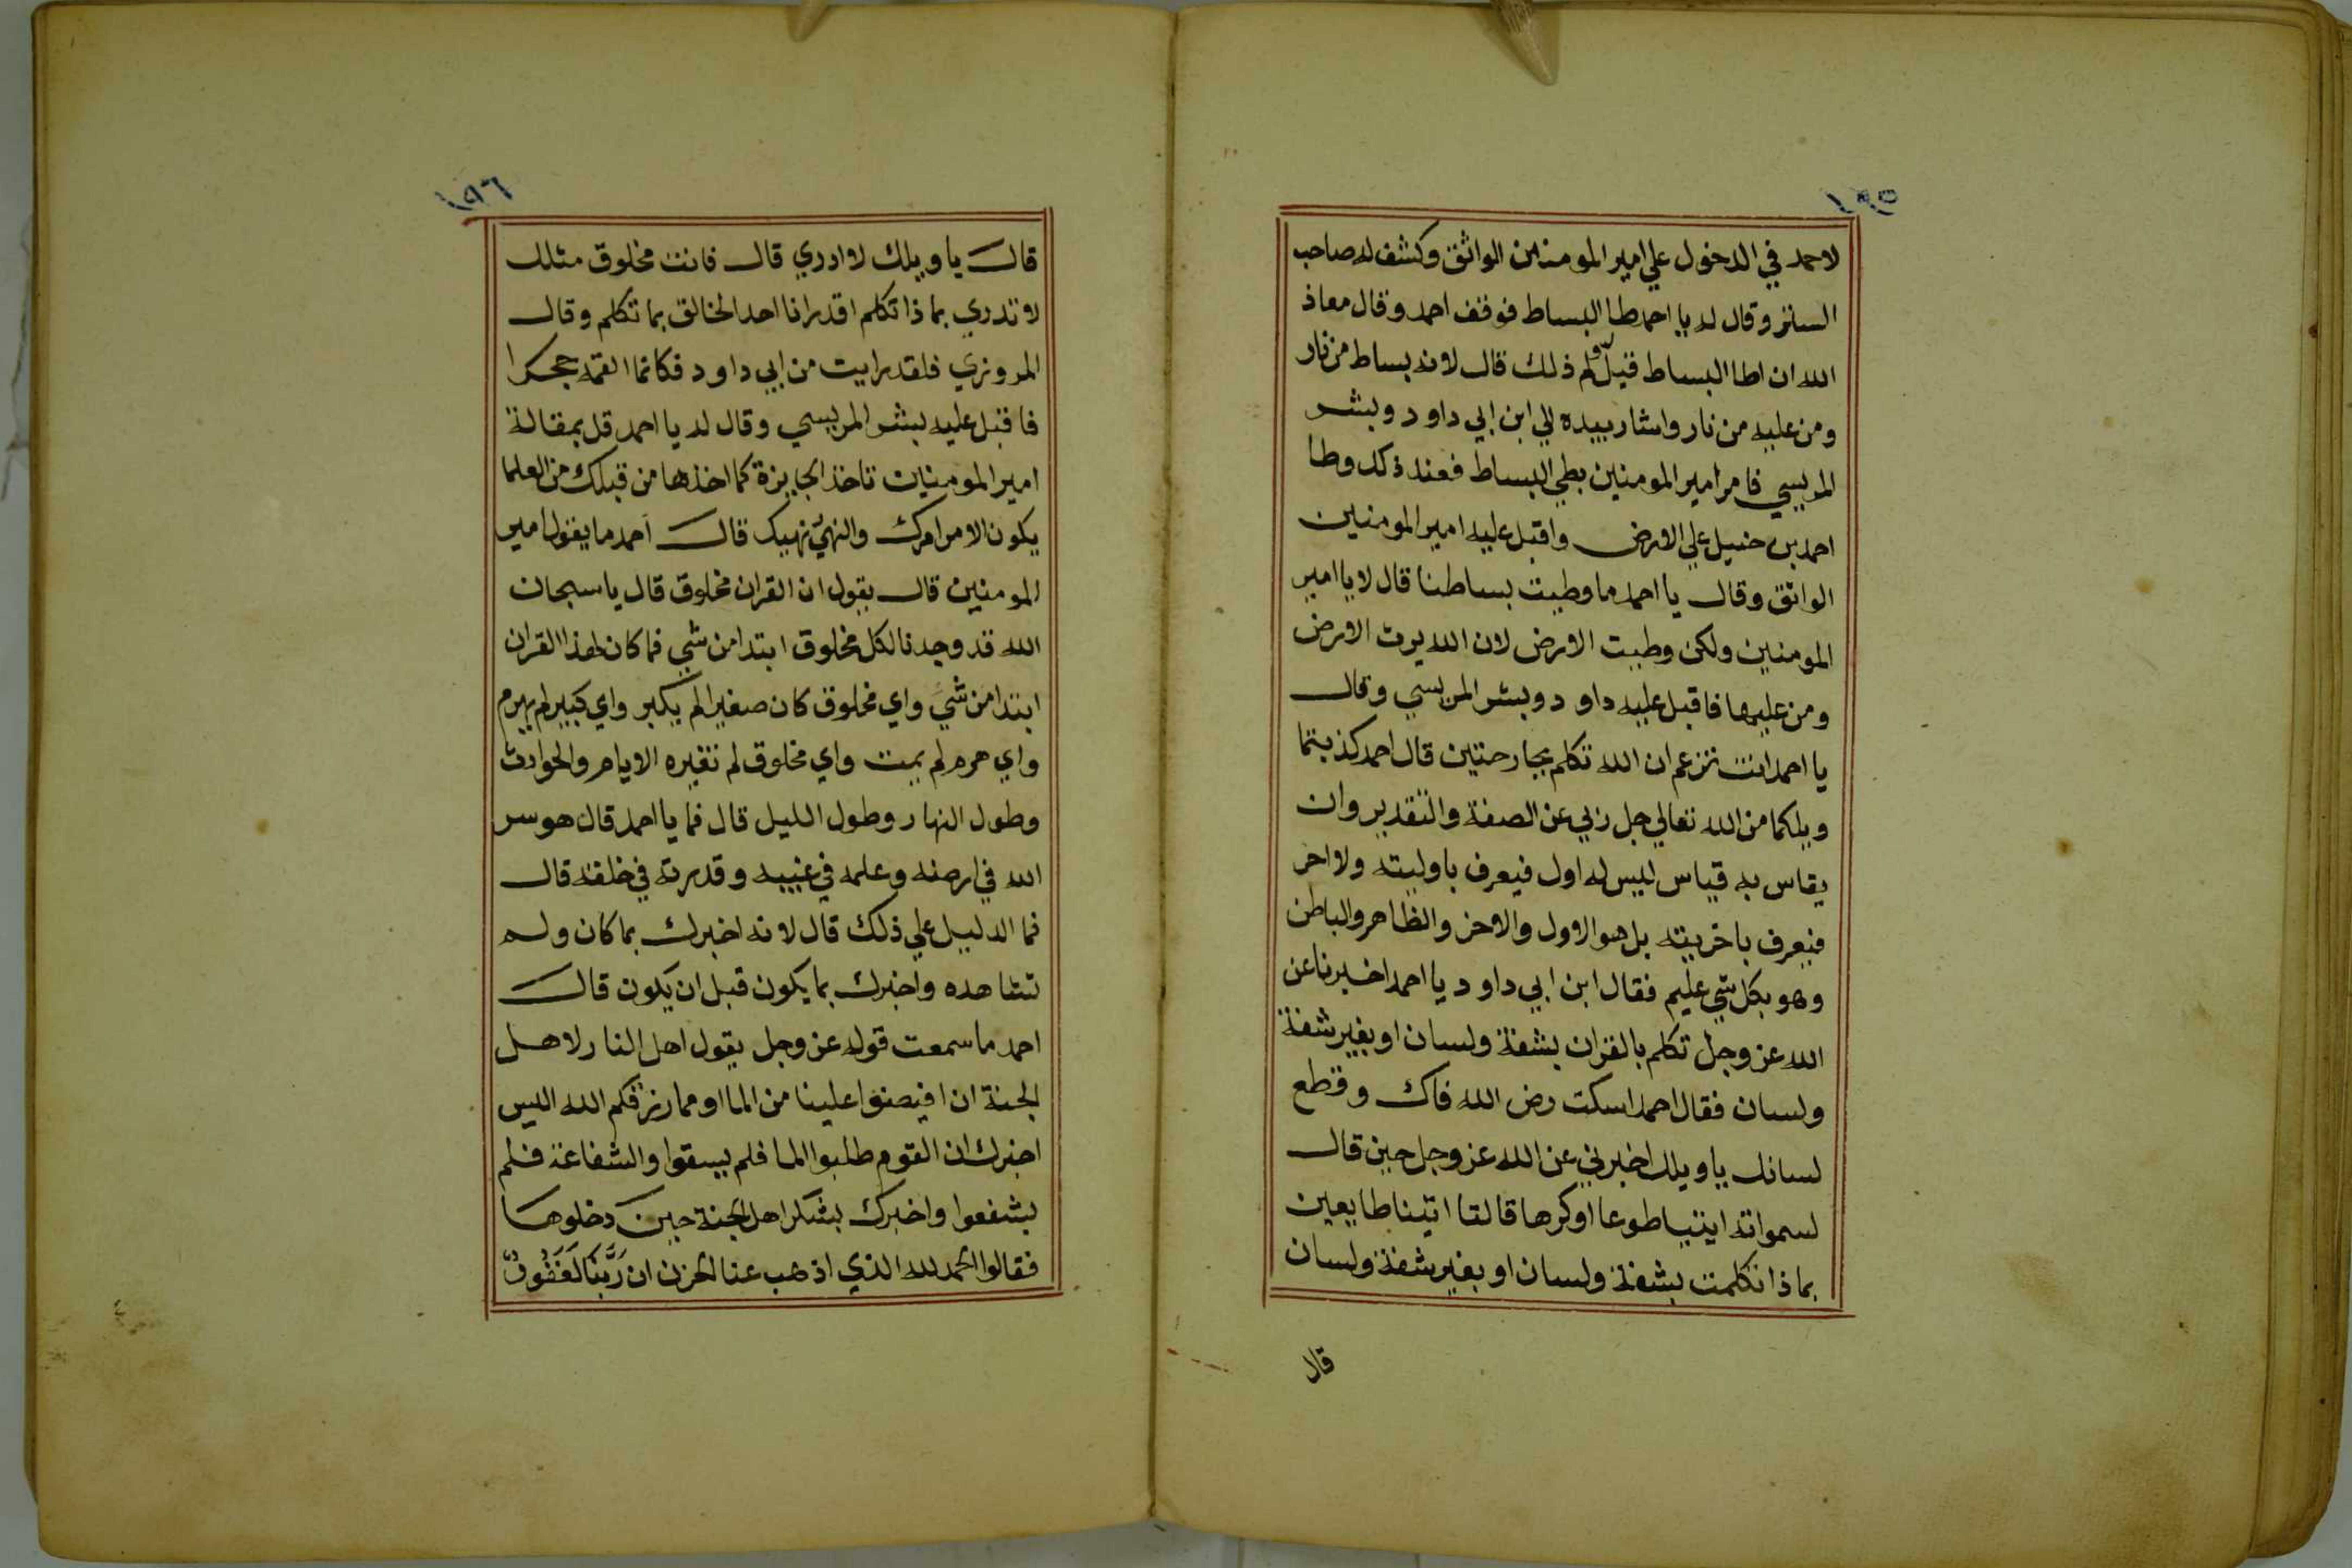 ١٩٥
لاحمد في الدخول علي امير المومنين الواثق وكشف له صاحب
الستر وقال له يا احمد طا البساط فوقف احمد وقال معاذ
الله ان اطا البساط قيل ولم ذلك قال لانه بساط من نار
ومن عليه من نار واشار بيده الي ابن ابي داود وبشر
المريسي فامر امير المومنين بطي البساط فعند ذلك وطا
احمد بن حنبل علي الارض واقبل عليه امير المومنين
الواثق وقال يا احمد ما وطيت بساطنا قال لا يا امير
المومنين ولكن وطيت الارض لان الله يرث الارض
ومن عليها فاقبل عليه داود وبشر المريسي وقال
يا احمد انت تزعم ان الله تكلم بجارحتين قال احمد كذبتما
ويلكما من الله تعالي جل ربي عن الصفة والتقدير وان
يقاس به قياس ليس له اول فيعرف باوليته ولا اخر
فيعرف باخريته بل هو الاول والاخر والظاهر والباطن
وهو بكل شي عليم فقال ابن ابي داود يا احمد اخبرنا عن
الله عز وجل تكلم بالقران بشفة ولسان او بغير شفة
ولسان فقال احمد اسكت رض الله فاك وقطع
لسانك يا ويلك اخبرني عن الله عز وجل حين قال
لسمواته ايتيا طوعا او كرها قالتا اتينا طايعين
بماذا تكلمت بشفة ولسان او بغير شفة ولسان
قال
١٩٦
قال يا ويلك لا ادري قال فانت مخلوق مثلك
لا تدري بماذا تكلم اقدر انا احد الخالق بما تكلم وقال
المروزي فلقد رايت من ابي داود فكانما القمه حجرا
فاقبل عليه بشر المريسي وقال له يا احمد قل بمقالة
امير المومنين تاخذ الجايزة كما اخذها من قبلك من العلما
يكون الامر امرك والنهي نهيك قال احمد ما يقول امير
المومنين قال يقول ان القران مخلوق قال يا سبحان
الله قد وجدنا لكل مخلوق ابتدا من شي فما كان لهذا القران
ابتدا من شي واي مخلوق كان صغيرا لم يكبر واي كبير لم يهرم
واي هرم لم يمت واي مخلوق لم تغيره الايام والحوادث
وطول النهار وطول الليل قال فما يا احمد قال هو سر
الله في ارضه وعلمه في غيبه وقدرته في خلقه قال
فما الدليل علي ذلك قال لانه اخبرك بما كان ولم
تشاهده واخبرك بما يكون قبل ان يكون قال
احمد ما سمعت قوله عز وجل يقول اهل النار لاهل
الجنة ان افيضوا علينا من الما او مما رزقكم الله اليس
اخبرك ان القوم طلبوا الما فلم يسقوا والشفاعة فلم
يشفعوا واخبرك بشكر اهل الجنة حين دخلوها
فقالوا الحمد لله الذي اذهب عنا الحزن ان رَبَّنَا لَغَفُورٌ